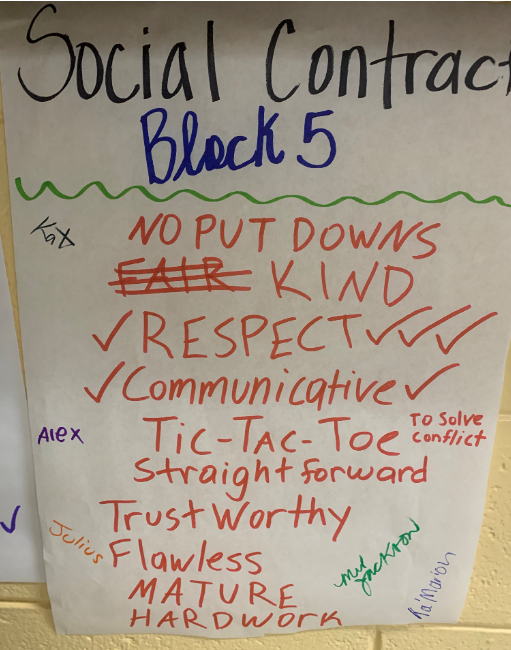 Social Contract
Block 5
Kax
NO PUT DOWNS
FAIR KIND
RESPECT
Communicative
Alex
TiC-TAC-Toe To Solve conflict
Straight forward
TrusT WorThy
Julius
Flawless
MATURE
Jackson
Ra'Marion
HARDWORK